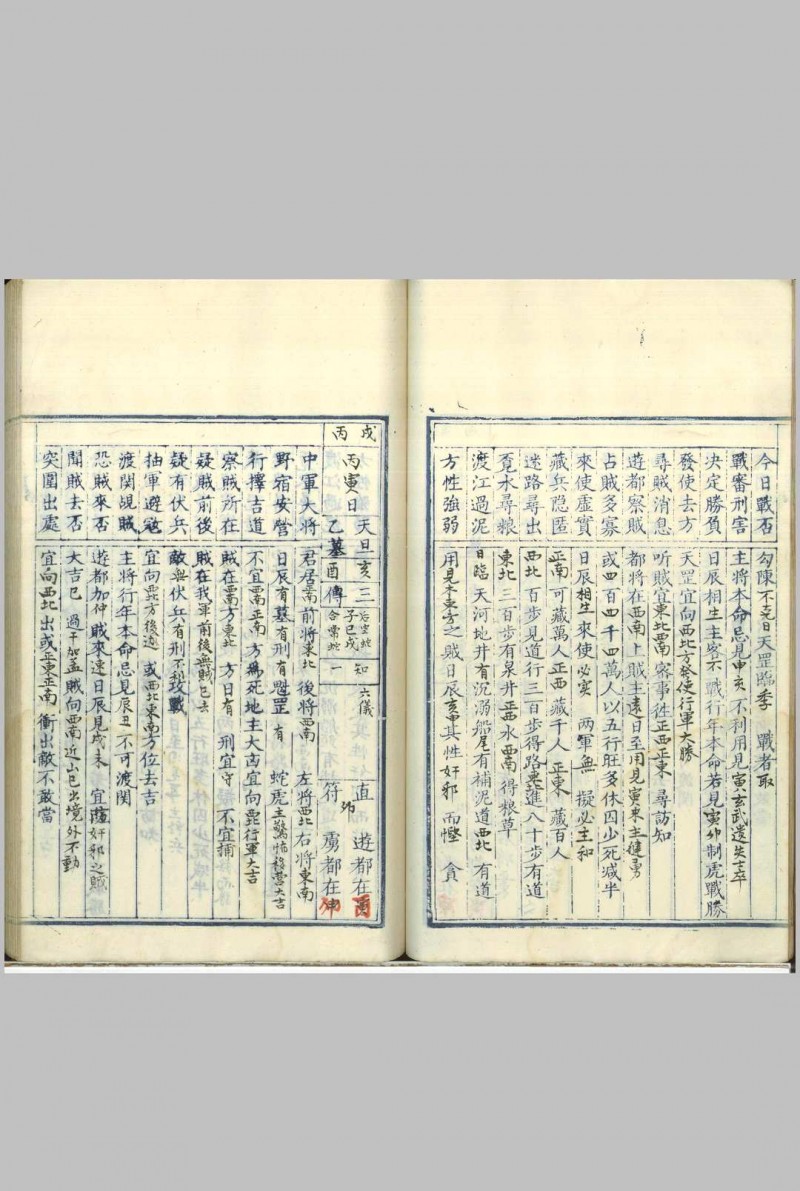 今日戰否 勾陳不克日天罡臨季 戰者取
戰審刑害 主將本命忌見申亥不利用見寅亥玄武遺失士卒
決定勝負 日辰相生主客不戰行年本命若見寅卯制虎戰勝
發使去方 天罡宜向西北方發使行軍大勝
尋賊消息 听賊宜東北西南客事徃正西正東尋訪知
遊都察賊 都將在西南上賊主遠日至用見寅來主健勇
占賊多寡 或四百四千四萬人以五行旺多休囚少死減半
來使虛實 日辰相生來使必实 兩軍無擬必主和
藏兵隐匿 正南可藏萬人正西藏千人正東藏百人
迷路尋出 西北百步見道行三百步得路進八十步有道
覓水尋粮 東北三百步有泉井正西水西南得粮草
渡江過泥 日臨天河地井有沉溺船尾有補泥道西北有道
方性強弱 用見之賊日辰亥申其性奸邪而慳貪
丙戌
丙寅日 天旦亥三 后空蛇 知 六儀 直 遊都在酉
乙墓酉傳 子巳戌 合常蛇 一 符 虜都在
中軍大將 君居南前將東北後將西南左將西北右將東南
野宿安營 日辰有墓有刑有魁罡有蛇虎主驚怖移營大吉
行擇吉道 不宜西南正南方為死地主大古宜向行軍大吉
察賊所在 賊在西南方東北方日有刑宜守不宜捕
疑賊前後 賊在我軍前後無賊已去
疑有伏兵 敵與伏兵有刑不利攻戰
抽軍避寇 宜向方後追或西北東南方位去吉
渡関覘賊 主將行年本命忌見辰丑不可渡関
恐賊來否 遊都加仲賊來速日辰見戌未宜奸邪之賊
聞賊去否 大吉巳過干加孟賊向西南近山已出境外不動
突圍出處 宜向西北出或正東正南衝出敵不敢當